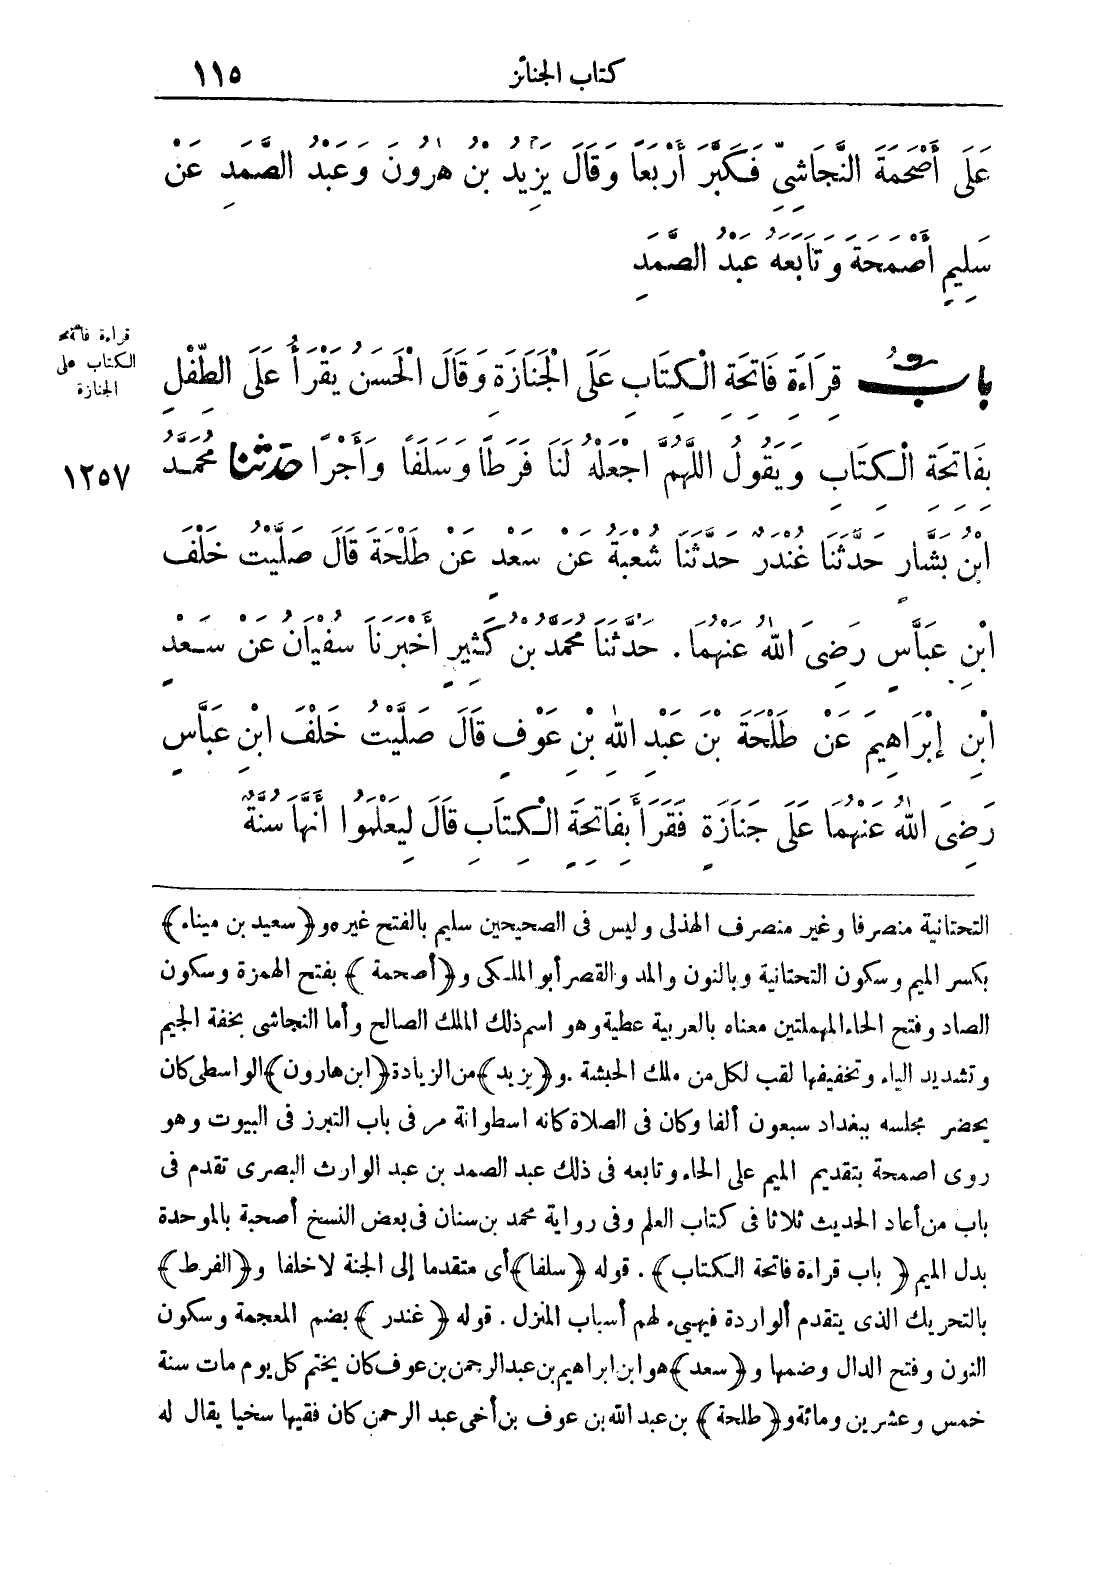 كتاب الجنائز
١١٥
عَلَى أَصْحَمَةَ النَّجَاشِيِّ فَكَبَّرَ أَرْبَعًا وَقَالَ يَزِيدُ بْنُ هٰرُونَ وَعَبْدُ الصَّمَدِ عَنْ
سَلِيمٍ أَصْمَحَةَ وَتَابَعَهُ عَبْدُ الصَّمَدِ
قراءة فاتحة
الكتاب على
الجنازة
بابُ قِرَاءَةِ فَاتِحَةِ الْكِتَابِ عَلَى الْجَنَازَةِ وَقَالَ الْحَسَنُ يَقْرَأُ عَلَى الطِّفْلِ
بِفَاتِحَةِ الْكِتَابِ وَيَقُولُ اللَّهُمَّ اجْعَلْهُ لَنَا فَرَطًا وَسَلَفًا وَأَجْرًا حَدَّثَنَا مُحَمَّدُ
١٢٥٧
ابْنُ بَشَّارٍ حَدَّثَنَا غُنْدَرٌ حَدَّثَنَا شُعْبَةُ عَنْ سَعْدٍ عَنْ طَلْحَةَ قَالَ صَلَّيْتُ خَلْفَ
ابْنِ عَبَّاسٍ رَضِىَ اللّٰهُ عَنْهُمَا . حَدَّثَنَا مُحَمَّدُ بْنُ كَثِيرٍ أَخْبَرَنَا سُفْيَانُ عَنْ سَعْدِ
ابْنِ إِبْرَاهِيمَ عَنْ طَلْحَةَ بْنِ عَبْدِ اللّٰهِ بْنِ عَوْفٍ قَالَ صَلَّيْتُ خَلْفَ ابْنِ عَبَّاسٍ
رَضِىَ اللّٰهُ عَنْهُمَا عَلَى جَنَازَةٍ فَقَرَأَ بِفَاتِحَةِ الْكِتَابِ قَالَ لِيَعْلَمُوا أَنَّهَا سُنَّةٌ
التحتانية منصرفا وغير منصرف الهذلى وليس فى الصحيحين سليم بالفتح غيره و﴿سعيد بن ميناء﴾
بكسر الميم وسكون التحتانية وبالنون والمد والقصر أبو الملكى و﴿أصحمة﴾ بفتح الهمزة وسكون
الصاد وفتح الحاء المهملتين معناه بالعربية عطية وهو اسم ذلك الملك الصالح وأما النجاشى بخفة الجيم
وتشديد الياء وتخفيفها لقب لكل من ملك الحبشة . و﴿يزيد﴾ من الزيادة ﴿ابن هارون﴾ الواسطى كان
يحضر مجلسه ببغداد سبعون ألفا وكان فى الصلاة كانه اسطوانة مر فى باب التبرز فى البيوت وهو
روى اصمحة بتقديم الميم على الحاء وتابعه فى ذلك عبد الصمد بن عبد الوارث البصرى تقدم فى
باب من أعاد الحديث ثلاثا فى كتاب العلم وفى رواية محمد بن سنان فى بعض النسخ أصحبة بالموحدة
بدل الميم ﴿باب قراءة فاتحة الكتاب﴾ . قوله ﴿سلفا﴾ أى متقدما إلى الجنة لاخلفا و﴿الفرط﴾
بالتحريك الذى يتقدم الواردة فيهيء لهم أسباب المنزل . قوله ﴿غندر﴾ بضم المعجمة وسكون
النون وفتح الدال وضمها و﴿سعد﴾ هو ابن ابراهيم بن عبد الرحمن بن عوف كان يختم كل يوم مات سنة
خمس وعشرين ومائة و﴿طلحة﴾ بن عبد الله بن عوف بن أخى عبد الرحمن كان فقيها سخيا يقال له